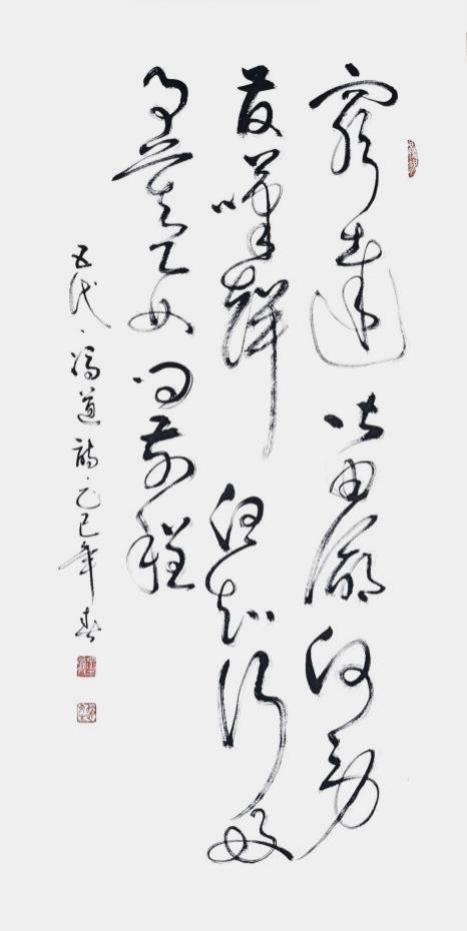 窮達皆由命何勞
發嘆聲但知行好
事莫要問前程
五代·馮道詩·乙巳年春